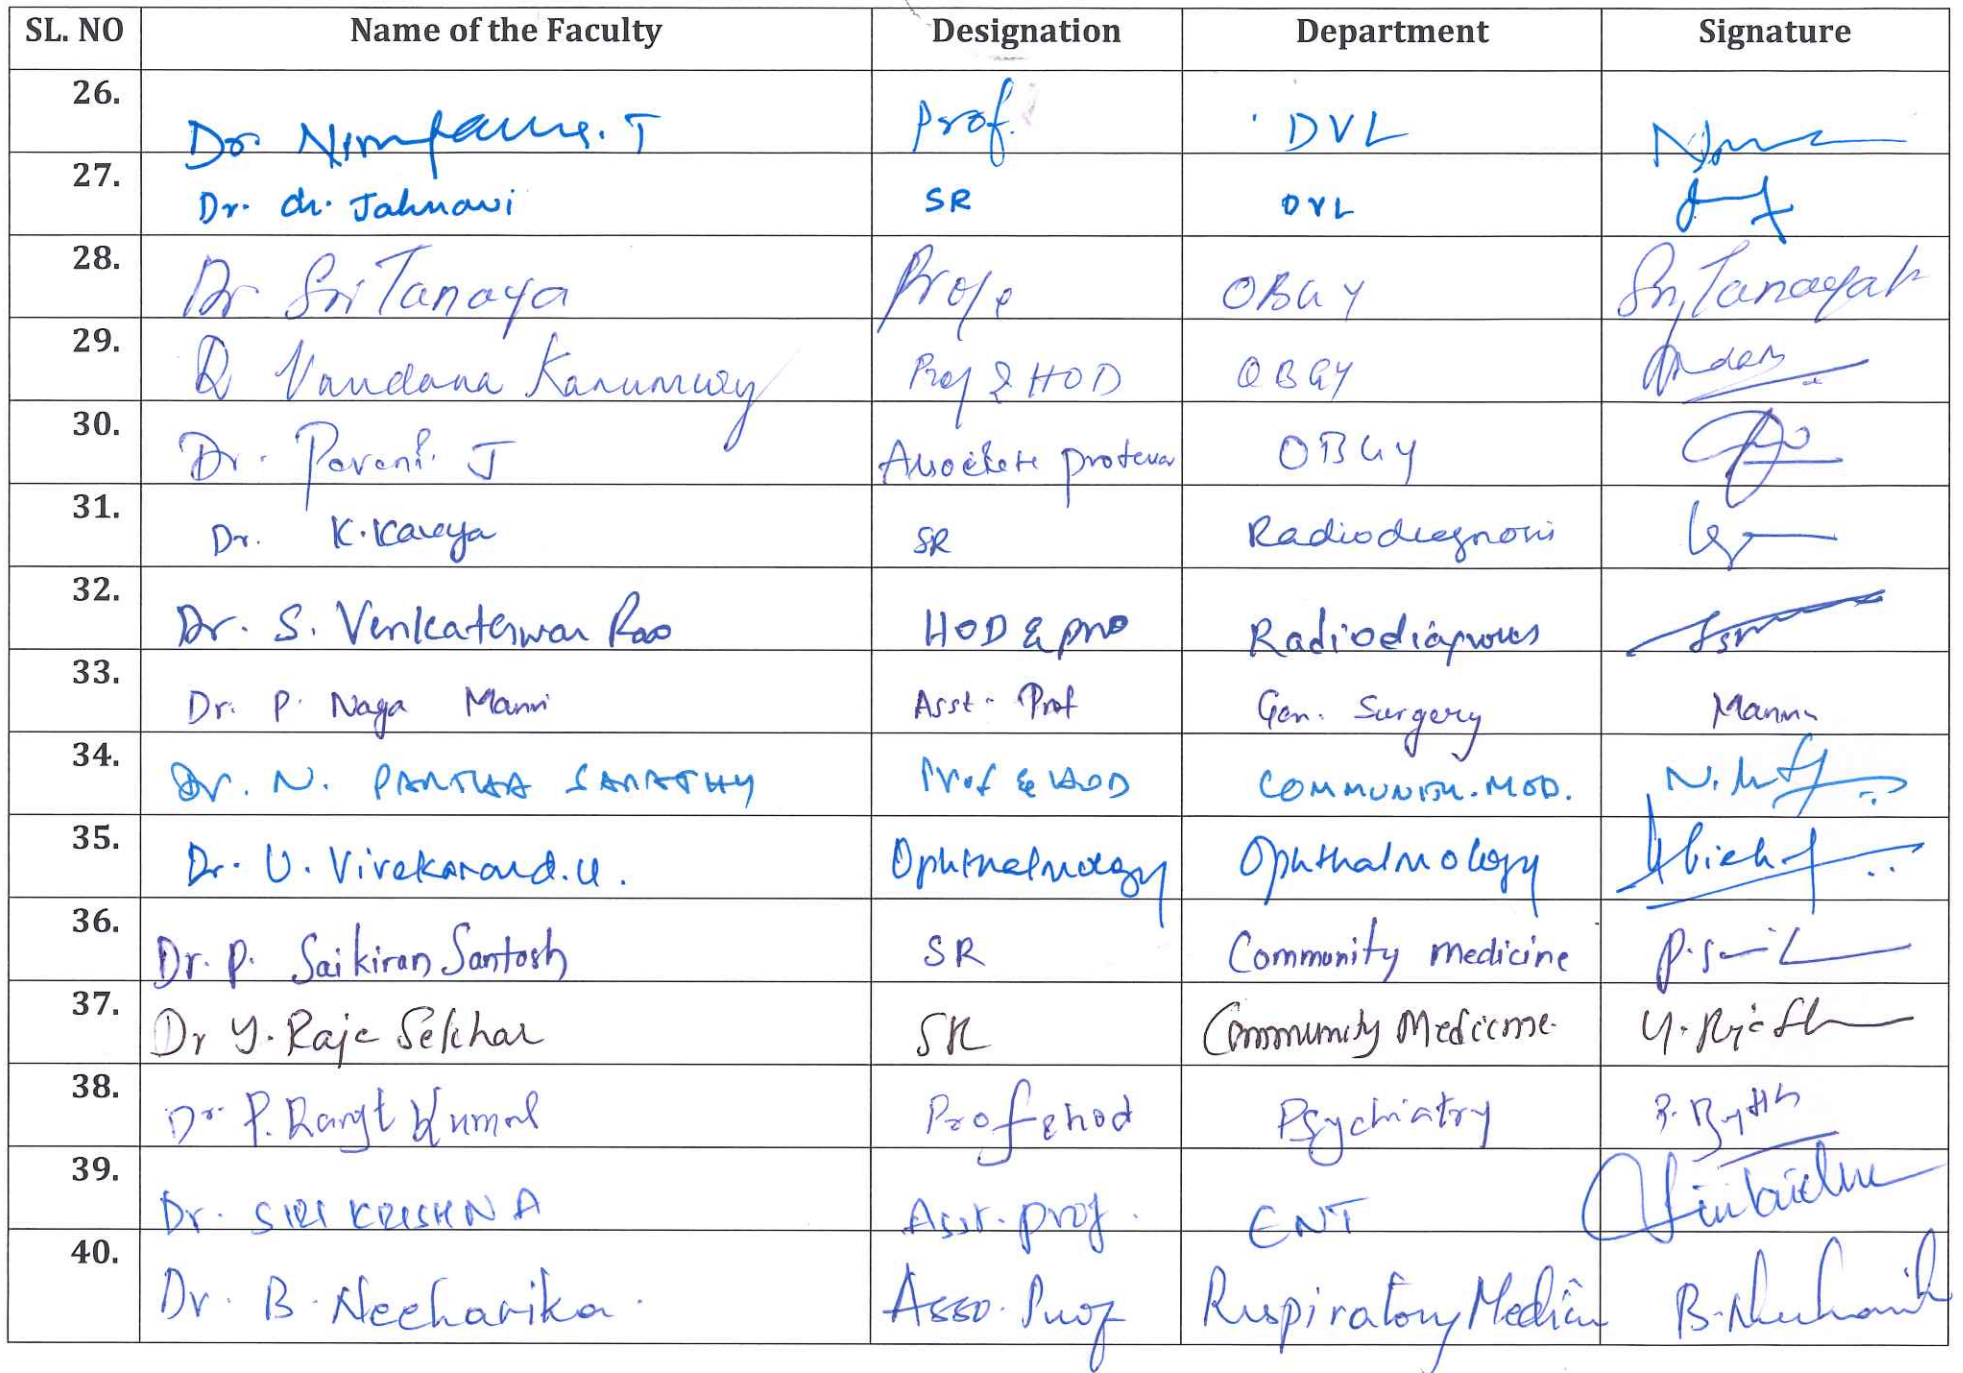 SL. NO Name of the Faculty Designation Department Signature
26. Dr. T Prof. DVL
27. Dr. Ch. Jahnavi SR DVL
28. Dr Sri Tanaya Prof OBGY Sri Tanayah
29. Vandana Kanumury Prof & HOD OBGY
30. Dr. Pavani. J Associate professor OBGY
31. Dr. K. SR Radiodiagnosis
32. Dr. S. Venkateswar Rao HOD & Radiodiagnosis
33. Dr. P. Naga Manni Asst. Prof Gen. Surgery Manni
34. Dr. N. PARTHA SARATHY Prof & HOD COMMUNITY. MED.
35. Dr. U. Vivekanand. U. Ophthalmology Ophthalmology
36. Dr. P. Saikiran Santosh SR Community medicine
37. Dr Y. Raja Sekhar SR Community Medicine.
38. Dr. P. Ranjit Kumar Prof & hod Psychiatry
39. Dr. SIRI KRISHNA Asst. prof. ENT
40. Dr. B. Neeharika. Asso. Prof Respiratory Medicin B. Neeharika